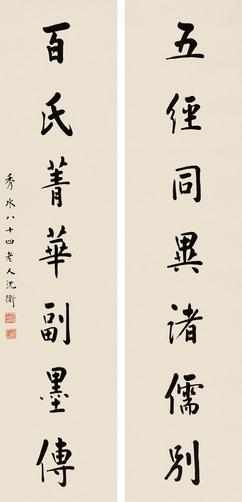 五經同異諸儒別
百氏菁華副墨傳
秀水八十四老人沈衛